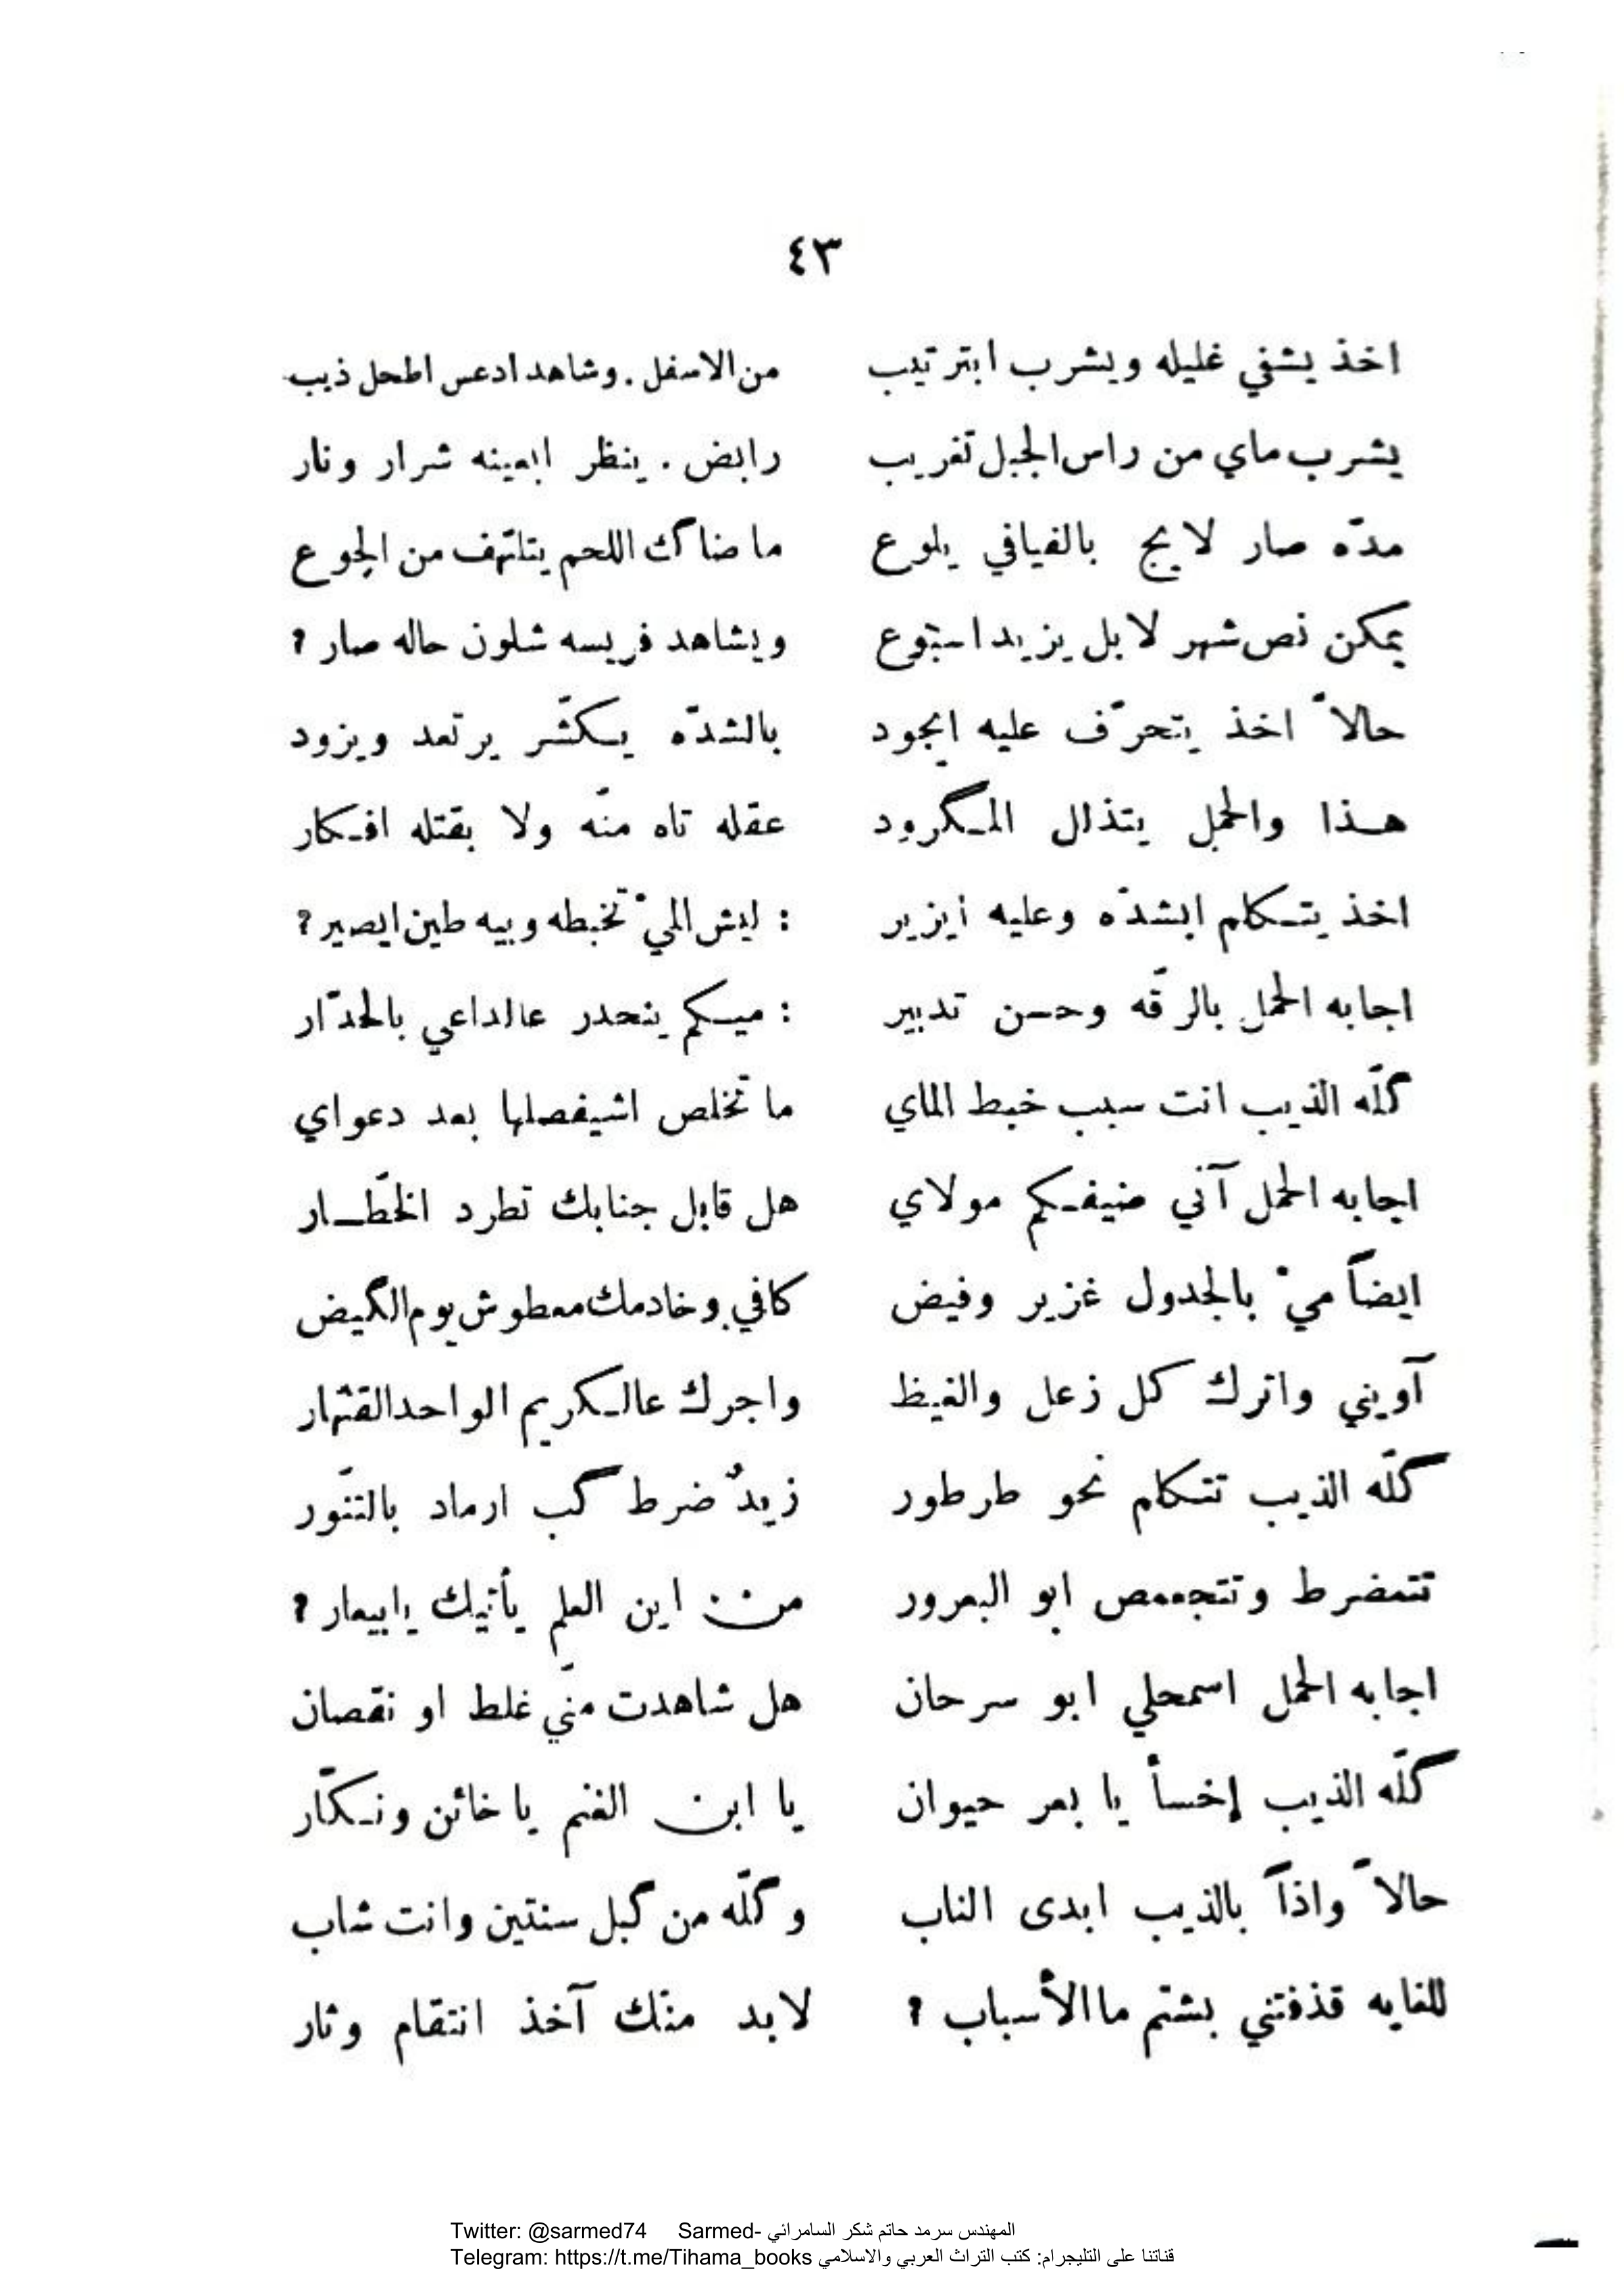 ٤٣
اخذ يشفي غليله ويشرب ابترتيب من الاسفل . وشاهد ادعس اطحل ذيب
يشرب ماي من راس الجبل تغريب رابض . ينظر ابعينه شرار ونار
مدّه صار لايج بالفيافي يلوع ما ضاگ اللحم يتلهّف من الجوع
يمكن نص شهر لا بل يزيد اسبوع ويشاهد فريسه شلون حاله صار ؟
حالاً اخذ يتحرّف عليه ابجود بالشدّه يكشّر يرتعد ويزود
هذا والحمل يتذلل المگرود عقله تاه منّه ولا بقتله افكار
اخذ يتكلم ابشدّه وعليه ايزير : ليش الميّ تخبطه وبيه طين ايصير ؟
اجابه الحمل بالرقّه وحسن تدبير : ميكم ينحدر عالداعي بالحدّار
گلّه الذيب انت سبب خبط الماي ما تخلص اشيفصلها بعد دعواي
اجابه الحمل آني ضيفكم مولاي هل قابل جنابك تطرد الخطّار
ايضاً ميّ بالجدول غزير وفيض كافي وخادمك معطوش يوم الگيض
آويني واترك كل زعل والغيظ واجرك عالكريم الواحد القهّار
گلّه الذيب تتكلم نحو طرطور زيدٌ ضرط گب ارماد بالتنّور
تتمضرط وتتجعمص ابو البعرور من اين العلم يأتيك يابيعار ؟
اجابه الحمل اسمحلي ابو سرحان هل شاهدت منّي غلط او نقصان
گلّه الذيب إخسأ يا بعر حيوان يا ابن الغنم يا خائن ونكّار
حالاً واذاً بالذيب ابدى الناب وگلّه من گبل سنتين وانت شاب
للغايه قذفتني بشتم ما الأسباب ؟ لابد منّك آخذ انتقام وثار
Twitter: @sarmed74 Sarmed- المهندس سرمد حاتم شكر السامرائي
Telegram: https://t.me/Tihama_books قناتنا على التليجرام: كتب التراث العربي والاسلامي